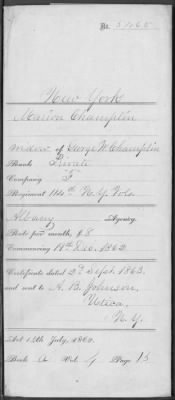 No. 5
New York
Marion Champlin
widow of George W. Champlin
Rank Private
Company F
Regiment N.Y. Vols.
Albany Agency.
Rate per month, $8
Commencing 19th Dec. 1862
Certificate dated 2d Sept. 1863.
and sent to A. B. Johnson,
Utica,
N. Y.
Act 14th July, 1862.
Book A Vol. 4 Page 15